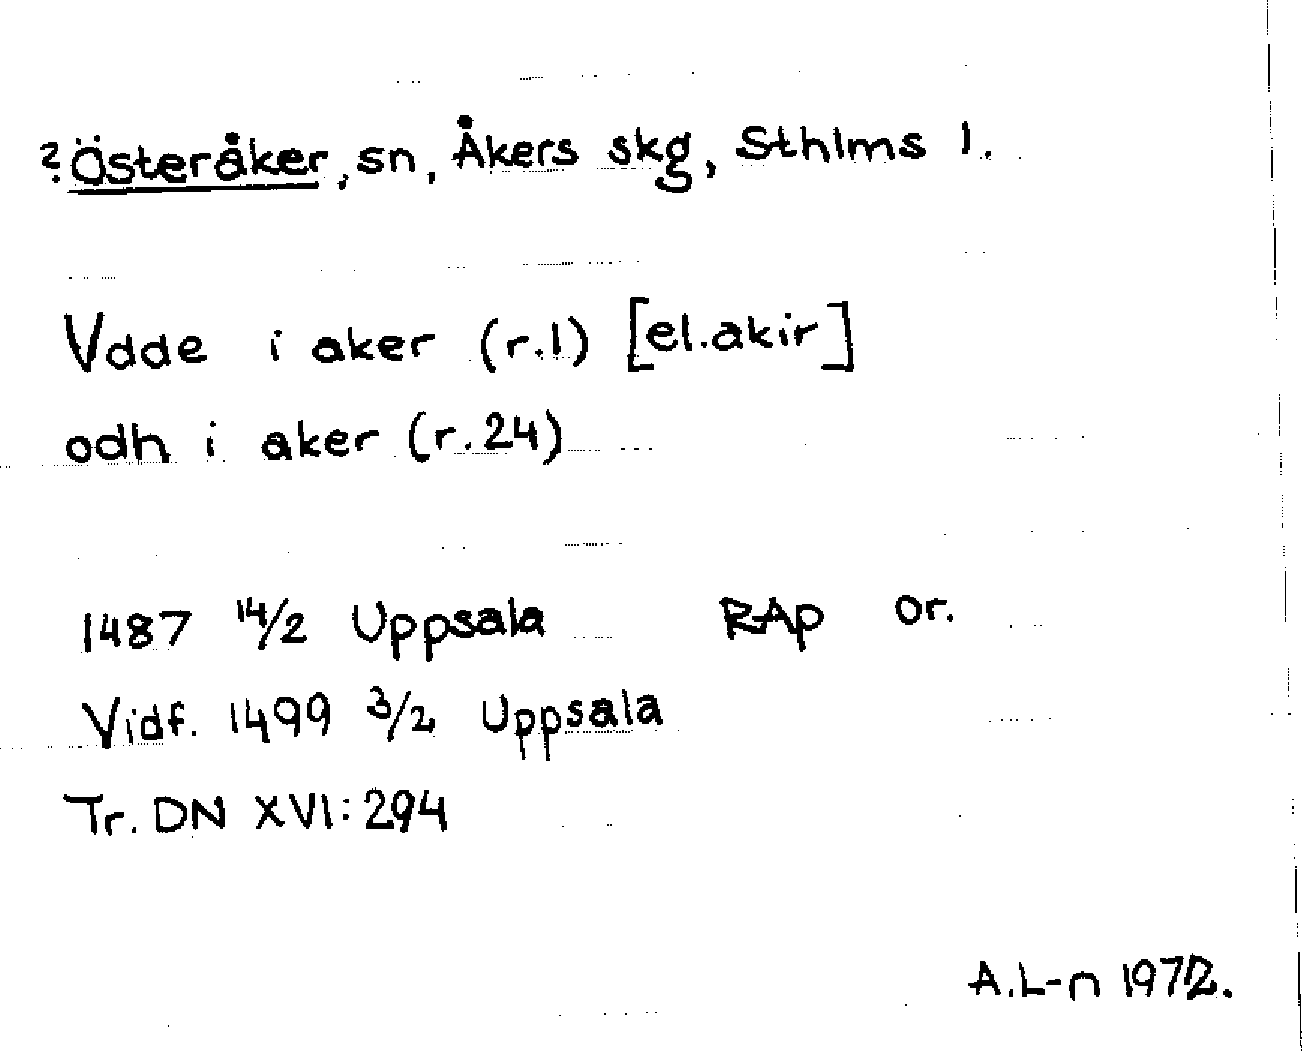 ? Österåker, sn, Åkers skg, Sthlms l.
Vdde i aker (r.1) [el. akir]
odh i aker (r.24)
1487 14/2 Uppsala RAp or.
Vidf. 1499 3/2 Uppsala
Tr. DN XVI: 294
A.L-n 1972.